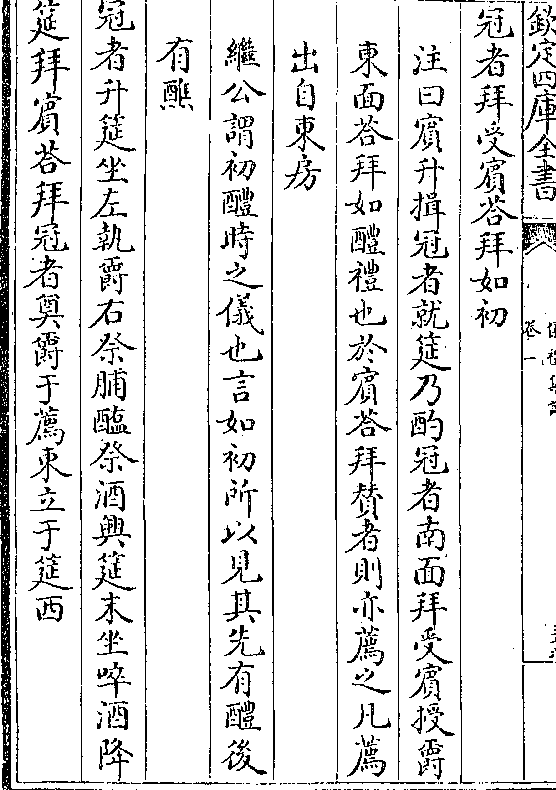 欽定四庫全書
卷一
冠者拜受賓荅拜如初
注曰賓升揖冠者就筵乃酌冠者南面拜受賓授爵
東面荅拜如醴禮也於賓荅拜贊者則亦薦之凡薦
出自東房
繼公謂初醴時之儀也言如初所以見其先有醴後
有醮
冠者升筵坐左執爵右祭脯醢祭酒興筵末坐啐酒降
筵拜賓荅拜冠者奠爵于薦東立于筵西